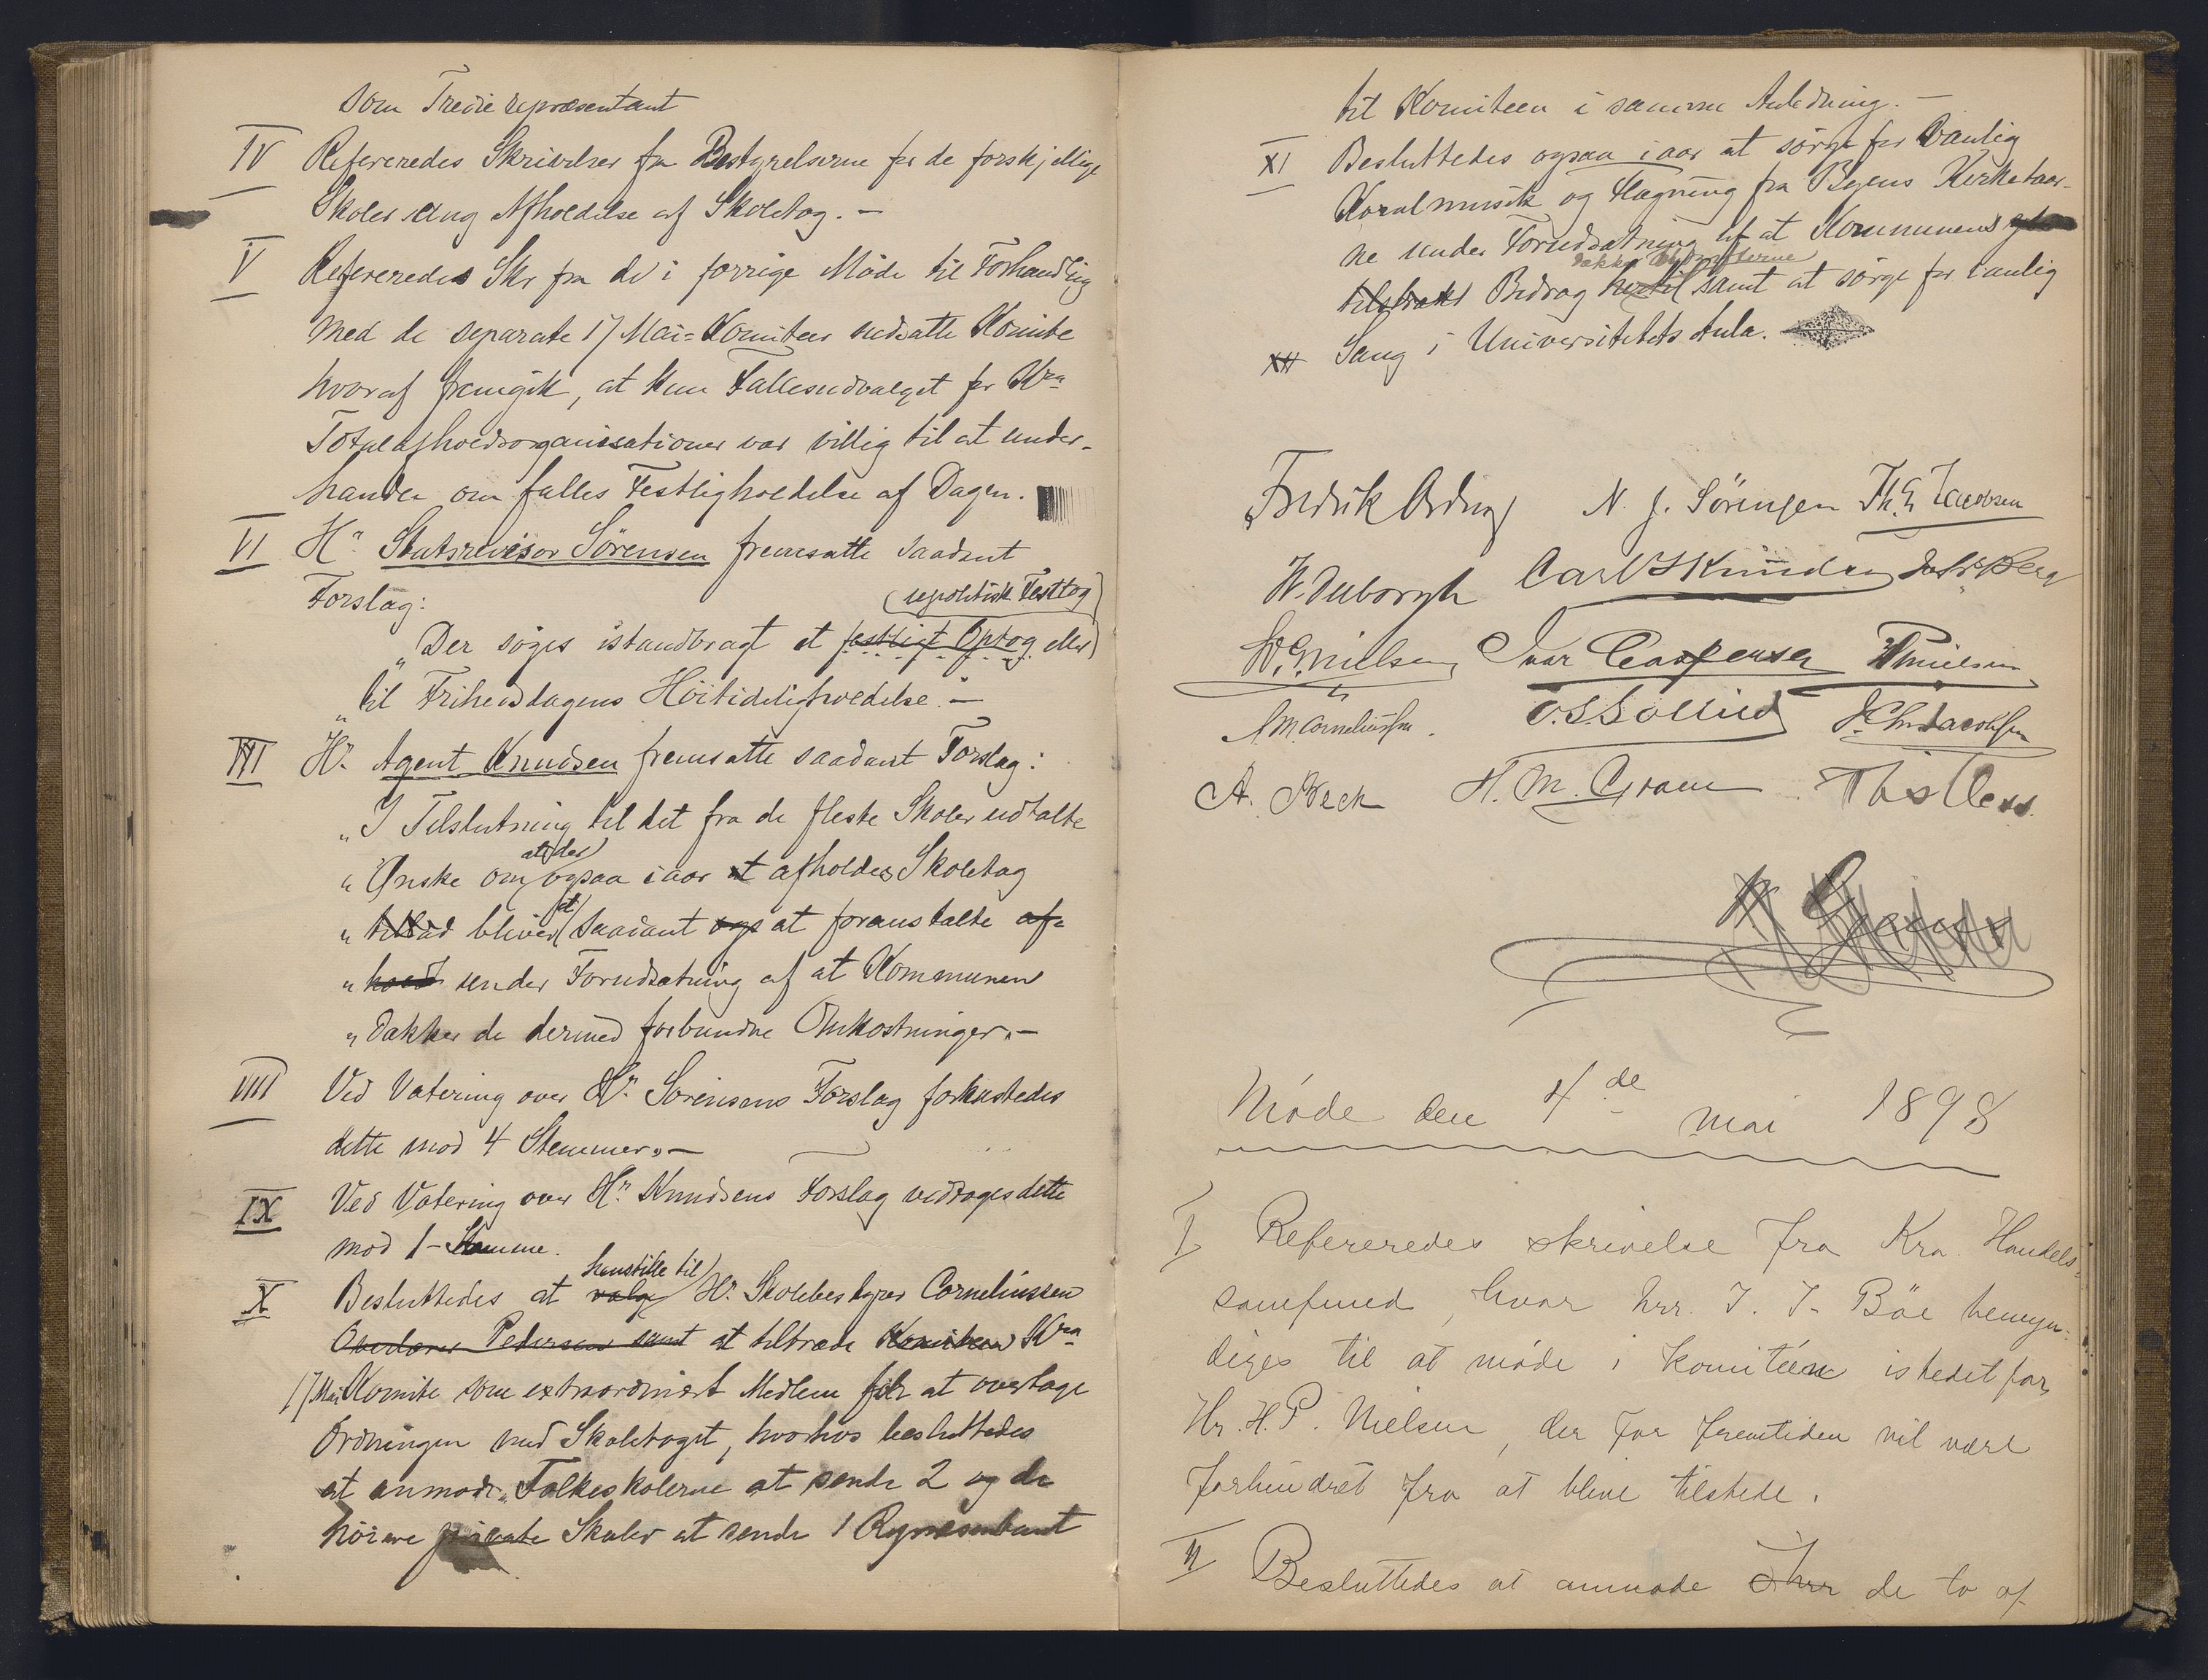 som Tredie repræsentant
IV Refereredes Skrivelser fra Bestyrelserne for de forskjellige
Skoler ang Afholdelse af Skoletog. —
V Refereredes Skr fra de i forrige Møde til Forhandling
med de separate 17 Mai-Komiteer nedsatte Komite
hvoraf fremgik, at kun Fællesudvalget for Kra
Totalafholdsorganisationer var villig til at under-
handle om fælles Festligholdelse af Dagen.
VI Hr. Statsrevisor Sörensen fremsatte saadant
Forslag:
(upolitisk Festtog)
„Der søges istandbragt et festligt Optog eller
„til Frihedsdagens Høitideligholdelse. —
VII Hr. Agent Knudsen fremsatte saadant Forslag:
„I Tilslutning til det fra de fleste Skoler udtalte
at der
„Ønske om ogsaa iaar at afholdes Skoletog
et
„tilraad bliver saadant ogs at foranstalte af-
„hold under Forudsætning af at Kommunen
„dækker de dermed forbundne Omkostninger. —
VIII Ved Votering over Hr. Sörensens Forslag forkastedes
dette mod 4 Stemmer. —
IX Ved Votering over Hr. Knudsens Forslag vedtoges dette
mod 1 - Stemme.
henstille til
X Besluttedes at valge Hr. Skolebestyrer Corneliussen
Overlærer Pedersen samt at tiltræde Komiteen Kra
17 Mai Komite som extraordinært Medlem for at overtage
Ordningen med Skoletoget, hvorhos besluttedes
at anmode Folkeskolerne at sende 2 og de
høiere private Skoler at sende 1 Representant
til Komiteen i samme Anledning. —
XI Besluttedes ogsaa iaar at sørge for vanlig
Koralmusik og Flagning fra Byens Kirketaar-
ne under Forudsætning af at Kommunens
dækker Udgifterne
tilstrakt Bidrag hertil samt at sørge for vanlig
XII Sang i Universitetets Aula.
Fredrik Ording N. J. Sörensen Th. E. Jacobsen
W. Duborgh Carl S Knudsen Joh. Berg
W. G. Nielsen Ivar Caspersen H P Nielsen
A. M. Corneliussen. O. S. Sollied J. Chr. Jacobsen
A. Beck H. M. Gram Ths Cless.
Møde den 4de mai 1898
I Refereredes skrivelse fra Kra. Handels-
samfund, hvor hrr. J. J. Böe bemyn-
diges til at møde i komitéen istedetfor
Hr. H. P. Nielsen, der for fremtiden vil være
forhindret fra at blive tilstede.
II Besluttedes at anmode Hrr de to af